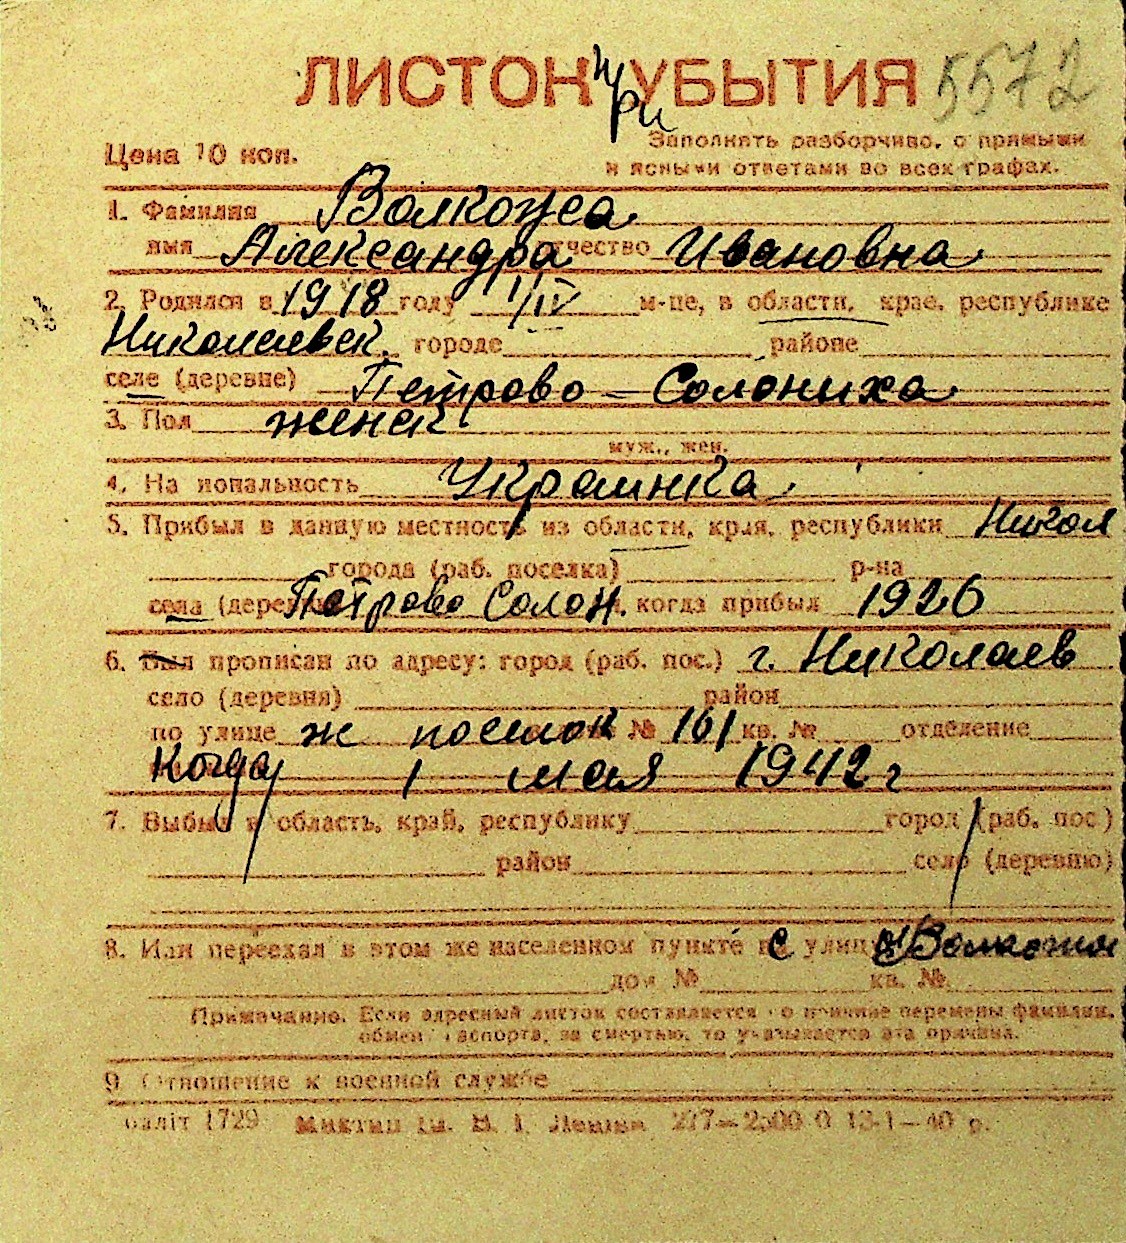 ЛИСТОК УБЫТИЯ 5572
при
Цена 10 коп.
Заполнять разборчиво, с прямыми
и ясными ответами во всех графах.
1. Фамилия
имя Александра отчество Ивановна
2. Родился в 1918 году 1/IV м-це, в области, крае, республике
Николаевск. городе районе
селе (деревне) Петрово-Солониха
3. Пол женск
муж., жен.
4. Национальность Украинка
5. Прибыл в данную местность из области, края, республики Никол
города (раб. поселка) р-на
села (деревни) Петрово Солон. когда прибыл 1926
6. Был прописан по адресу: город (раб. пос.) г. Николаев
село (деревня) район
по улице ж поселок № 161 кв. № отделение
Когда 1 мая 1942 г
7. Выбыл в область, край, республику город (раб. пос)
район село (деревню)
8. Или переехал в этом же населенном пункте с улиц
дом № кв. №
Примечание. Если адресный листок составляется по причине перемены фамилии,
обмен паспорта, за смертью, то указывается эта причина.
9. Отношение к военной службе
1729 277—2500 0 13-1—40 р.